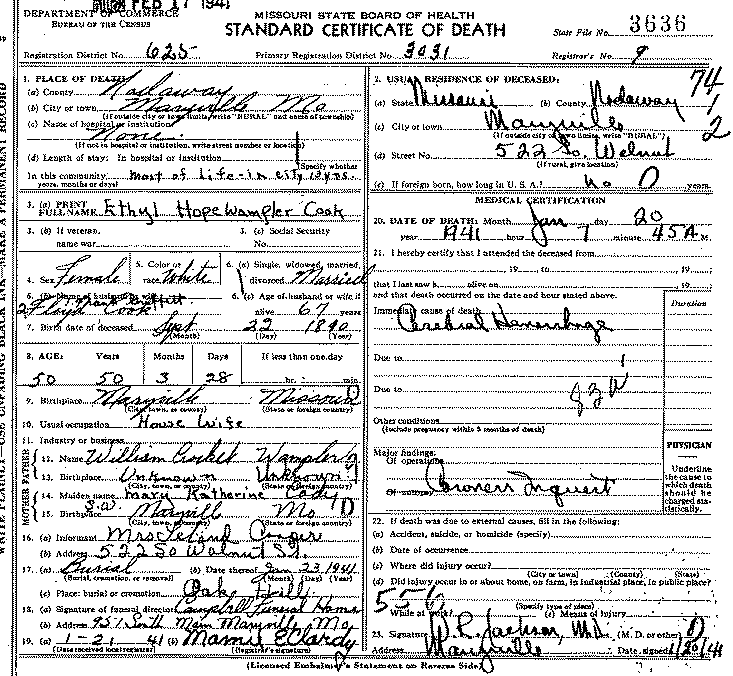 FEB 17 1941
DEPARTMENT OF COMMERCE
BUREAU OF THE CENSUS
MISSOURI STATE BOARD OF HEALTH
STANDARD CERTIFICATE OF DEATH
State File No. 3636
Registration District No. 625 Primary Registration District No. 3031 Registrar's No. 9
1. PLACE OF DEATH:
(a) County Nodaway
(b) City or town Maryville Mo
(If outside city or town limits, write "RURAL" and name of township)
(c) Name of hospital or institution:
None
(If not in hospital or institution, write street number or location)
(d) Length of stay: In hospital or institution
(Specify whether
In this community most of life-in city
years, months or days)
3. (a) PRINT FULL NAME Ethyl Hope Wampler Cook
3. (b) If veteran, name war 3. (c) Social Security No.
4. Sex Female 5. Color or race White 6. (a) Single, widowed, married, divorced Married
6. (b) Name of husband or wife
2 Floyd Cook 6. (c) Age of husband or wife if alive 67 years
7. Birth date of deceased Sept 22 1890
(Month) (Day) (Year)
8. AGE: Years Months Days If less than one day
50 50 3 28 hr. min.
9. Birthplace Maryville Missouri
(City, town, or county) (State or foreign country)
10. Usual occupation House Wife
11. Industry or business
FATHER
12. Name William Wampler
13. Birthplace Unknown Unknown
(City, town, or county) (State or foreign country)
MOTHER
14. Maiden name Mary Katherine Cody
15. Birthplace Maryvill Mo
(City, town, or county) (State or foreign country)
16. (a) Informant Mrs Leland
(b) Address 522 So Walnut St.
17. (a) Burial (b) Date thereof Jan 23, 1941
(Burial, cremation, or removal) (Month) (Day) (Year)
(c) Place: burial or cremation Oak Hill
18. (a) Signature of funeral director Campbell Funeral Home
(b) Address 951 South Main Maryville Mo
19. (a) 1-21 41 (b) Mamie E Clardy
(Date received local registrar) (Registrar's signature)
2. USUAL RESIDENCE OF DECEASED:
74
1
2
(a) State Missouri (b) County Nodaway
(c) City or town Maryville
(If outside city or town limits, write "RURAL")
(d) Street No. 522 So. Walnut
(If rural, give location)
(e) If foreign born, how long in U. S. A.? no 0 years
MEDICAL CERTIFICATION
20. DATE OF DEATH: Month Jan day 20
year 1941 hour 7 minute 45 A M.
21. I hereby certify that I attended the deceased from
, 19 to , 19
that I last saw h alive on , 19
and that death occurred on the date and hour stated above.
Immediate cause of death Duration
Cerebral Hemorrhage
Due to
Due to
Other conditions
(Include pregnancy within 3 months of death)
Major findings:
Of operations
Of autopsy Coroners Inquest
PHYSICIAN
Underline the cause to which death should be charged statistically.
22. If death was due to external causes, fill in the following:
(a) Accident, suicide, or homicide (specify)
(b) Date of occurrence
(c) Where did injury occur?
(City or town) (County) (State)
(d) Did injury occur in or about home, on farm, in industrial place, in public place?
(Specify type of place)
While at work? (e) Means of injury
23. Signature W.R. Jackson, M.D. (M. D. or other)
Address Maryville Date signed 1/20/41
(Licensed Embalmer's Statement on Reverse Side)